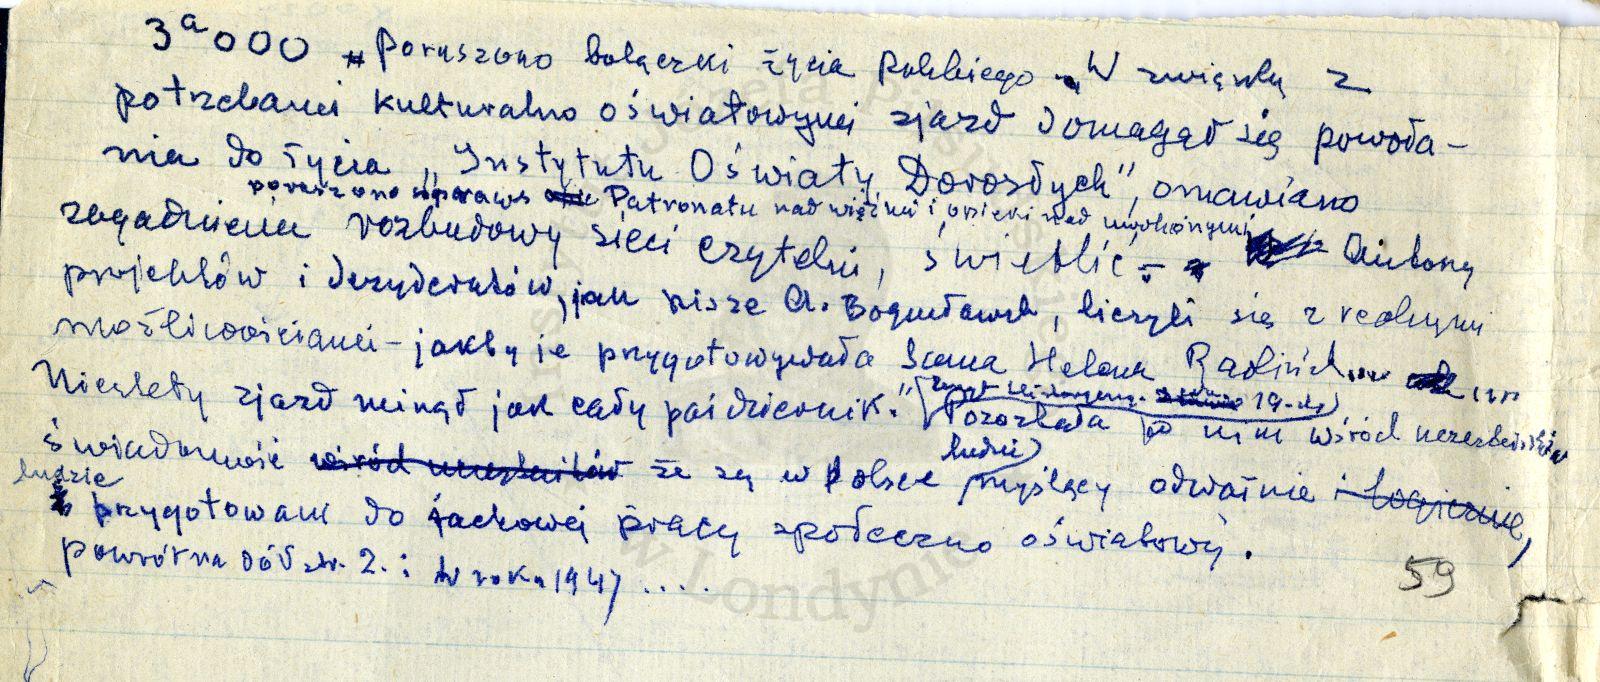 3a000 „Poruszono bolączki życia polskiego. W związku z
potrzebami kulturalno oświatowymi zjazd domagał się powoła-
nia do życia „Instytutu Oświaty Dorosłych", omawiano
poruszono sprawę Patronatu nad więźniami i opieki nad
zagadnienia rozbudowy sieci czytelni, świetlic - Autorzy
projektów i dezyderatów, jak pisze A. Bogusławsk, liczyli się z realnymi
możliwościami - jakby je przygotowywała sama Helena Radlińsk
Niestety zjazd minął jak cały październik."
19
Pozostała po nim wśród uczestników
świadomość wśród uczestników że są w Polsce ludzie myślący odważnie i logicznie,
ludzie
przygotowani do fachowej pracy społeczno oświatowej.
powrót na dół str. 2. : W roku 1947 .....
59
w Londynie